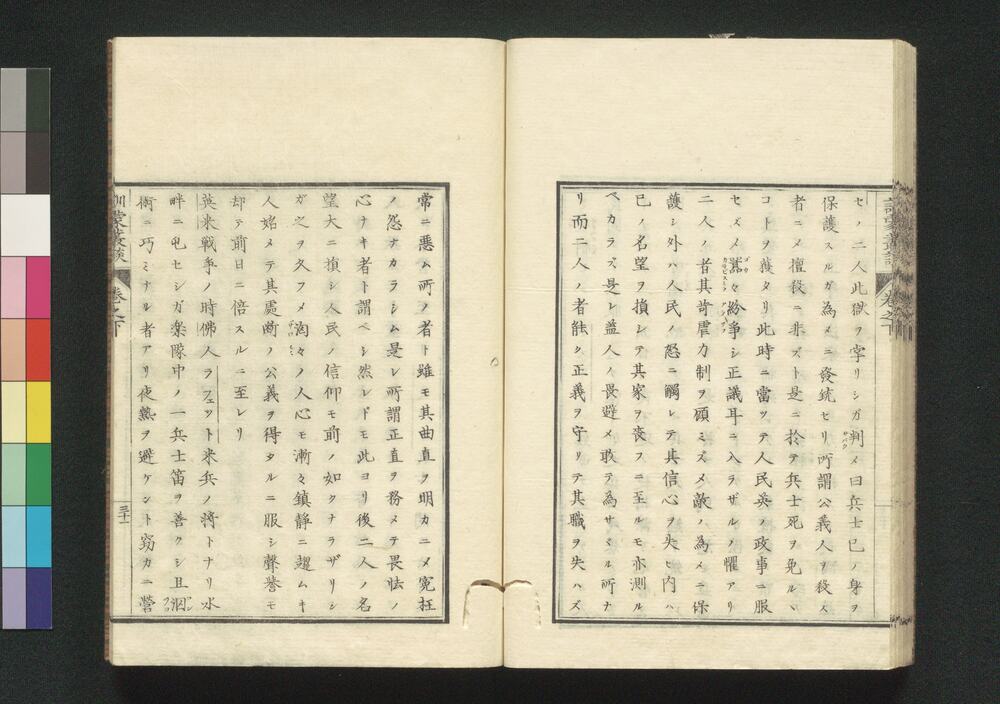 セノ二人此獄ヲ宰リシガ判メ曰兵士己ノ身ヲ
保護スルガ為メニ發銃セリ所謂公義人ヲ殺ス
者ニメ擅殺ニ非ズト是ニ於テ兵士死ヲ免ルヽ
コトヲ獲タリ此時ニ當ツテ人民英ノ政事ニ服
セズメ囂々紛爭シ正議耳ニ入ラザルノ懼アリ
二人ノ者其苛虐力制ヲ顧ミズメ敵ノ為メニ保
護シ外ハ人民ノ怒ニ觸レテ其信心ヲ失ヒ内ハ
已ノ名望ヲ損シテ其家ヲ喪フニ至ルモ亦測ル
ベカラズ是レ蓋人ノ畏避メ敢テ為サヾル所ナ
リ而ニ人ノ者能ク正義ヲ守リテ其職ヲ失ハズ
常ニ惡ム所ノ者ト雖モ其曲直ヲ明カニメ冤枉
ノ怨ナカラシム是レ所謂正直ヲ務メテ畏怯ノ
心ナキ者ト謂ベシ然レドモ此ヨリ後二人ノ名
望大ニ損シ人民ノ信仰モ前ノ如クナラザリシ
ガ之ヲ久フメ洶々ノ人心モ漸々鎮靜ニ趨ムキ
人始メテ其處斷ノ公義ヲ得タルニ服シ聲譽モ
却テ前日ニ倍スルニ至レリ
英米戦爭ノ時佛人ラフェット米兵ノ将トナリ水
畔ニ屯セシガ楽隊中ノ一兵士笛ヲ善クシ且泅
術ニ巧ミナル者アリ夜熱ヲ避ケント窃カニ營
訓蒙叢談 卷之下
三十二